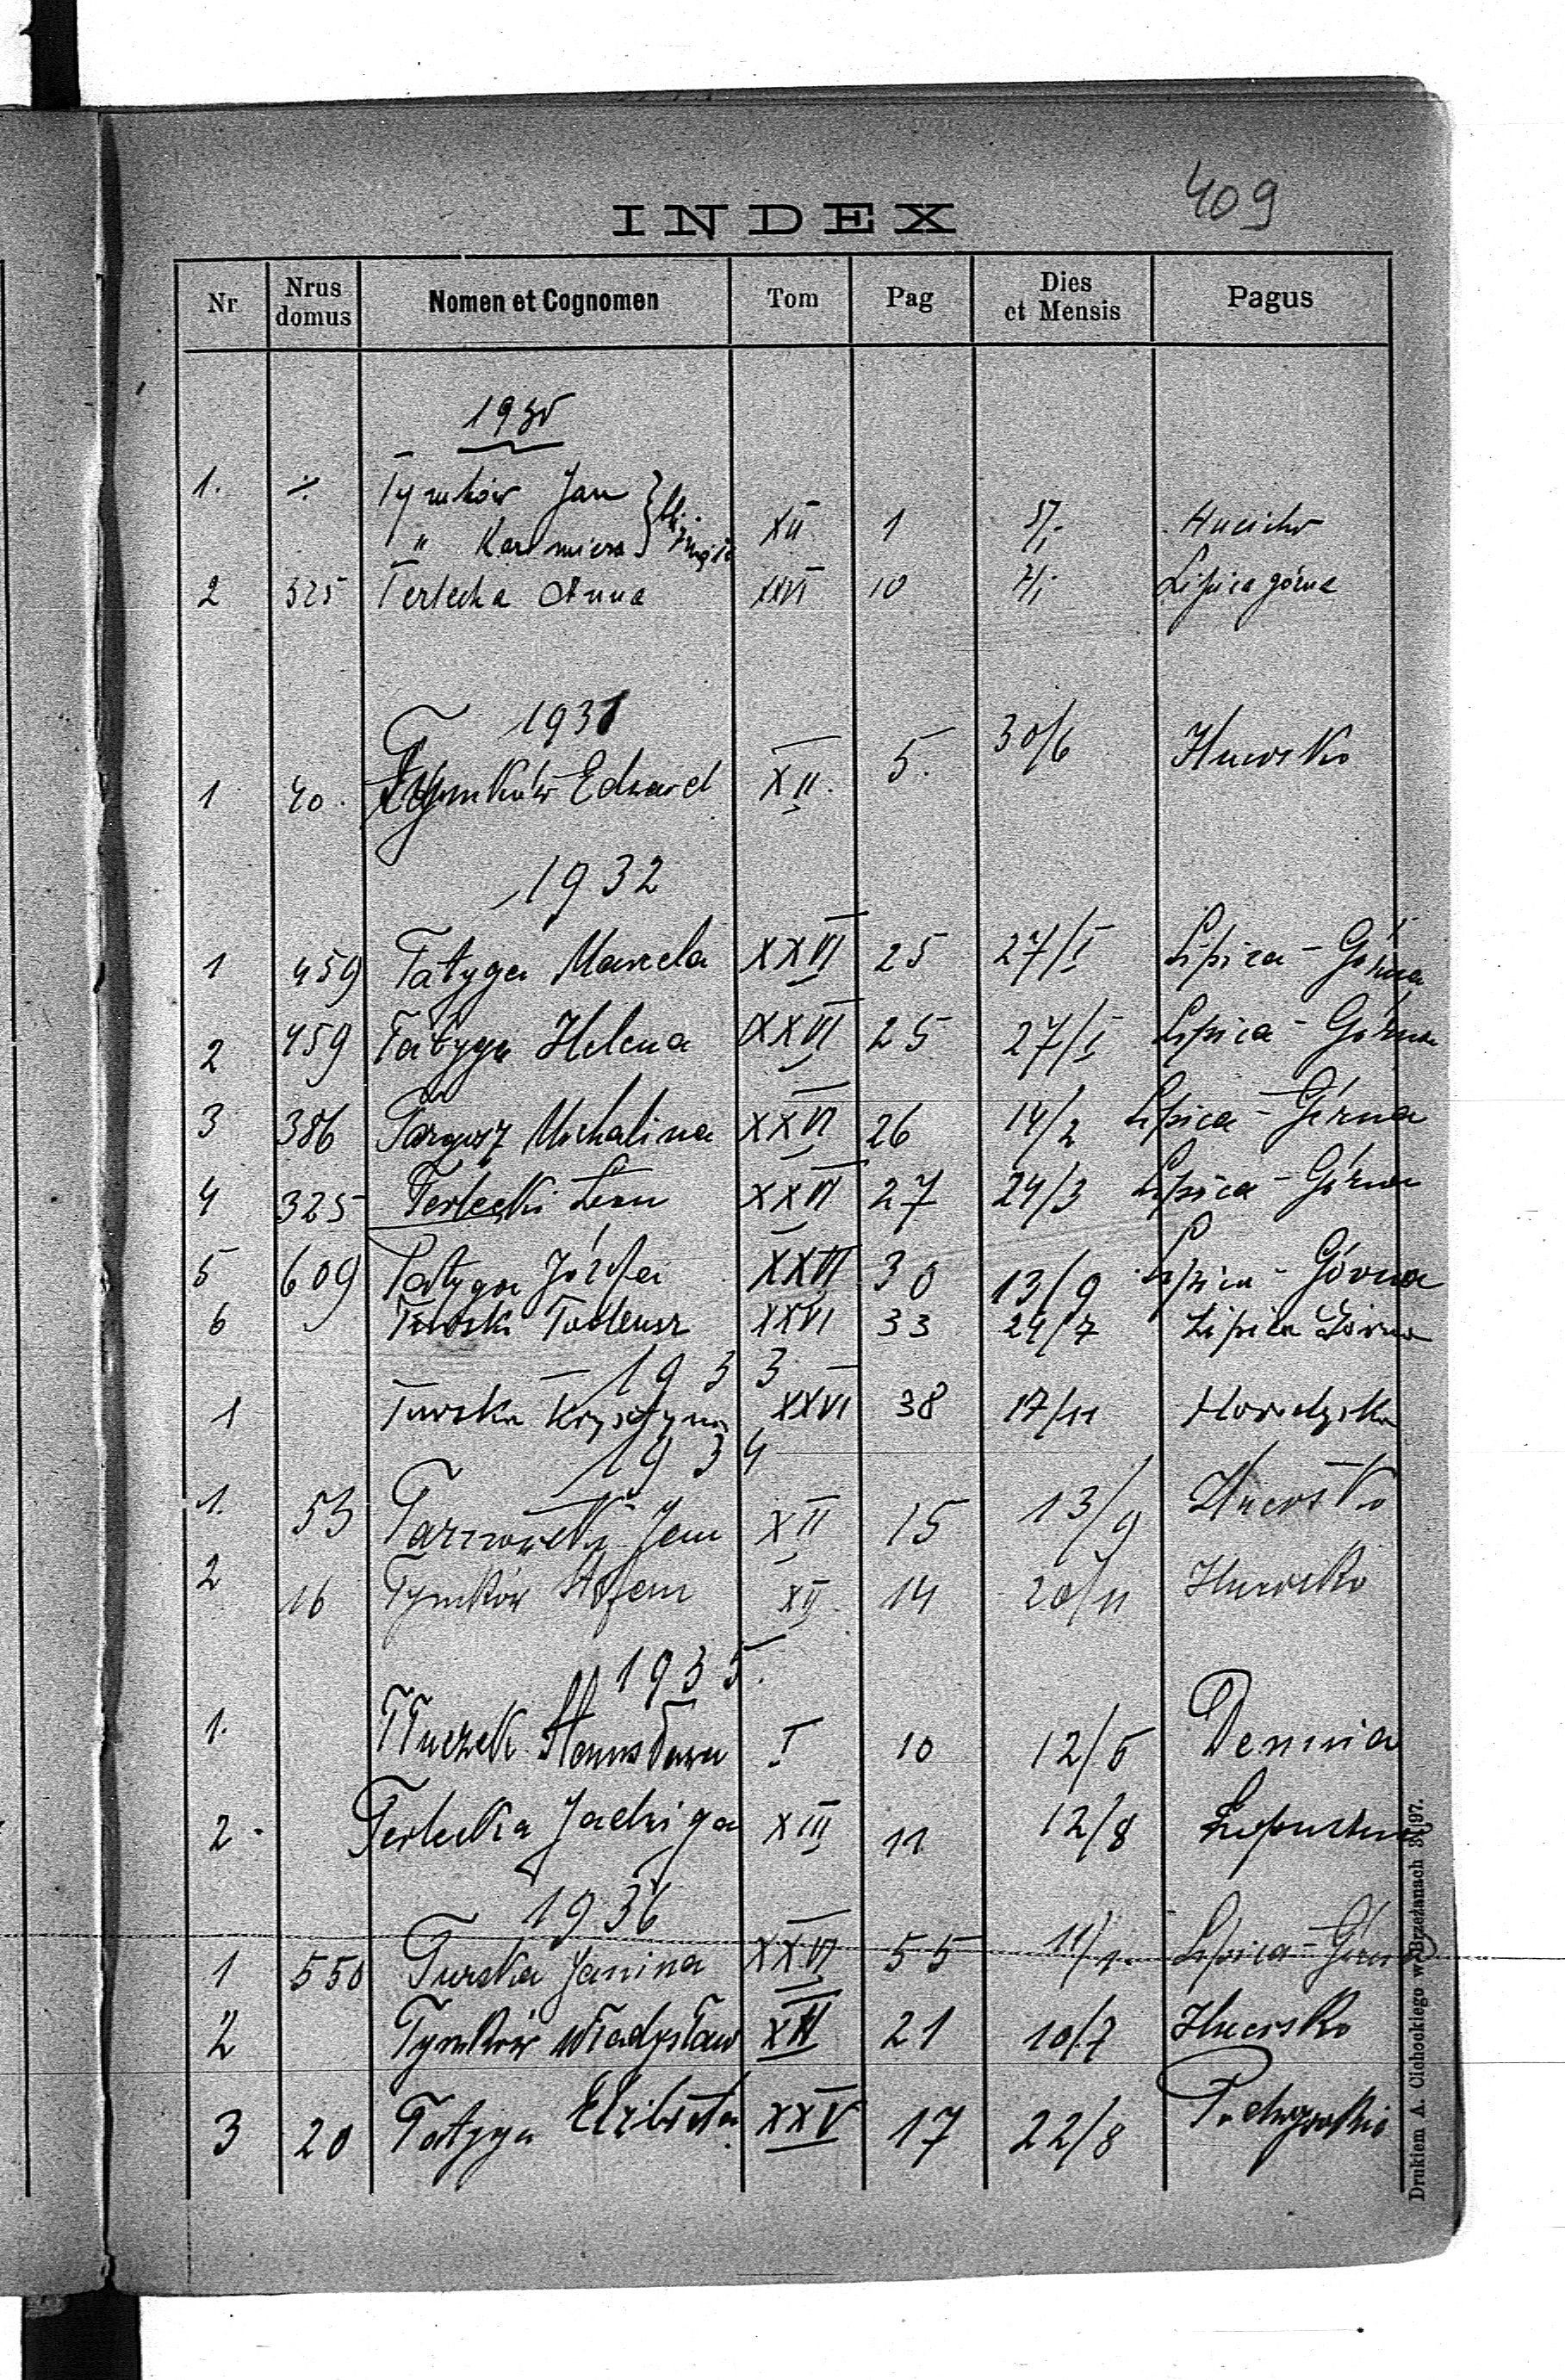 409
INDEX
Nr Nrus domus Nomen et Cognomen Tom Pag Dies et Mensis Pagus
1930
1. Tymków Jan XII 1 5/I Hucisko
" Kazimiera
2 325 Terlecka Anna XXVI 10 Lipica górna
1931
1 40. Tymków Edward XII. 5. 30/6 Hucisko
1932
1 459 Tatyga Marcela XXVI 25 27/I Lipica-Górna
2 459 Tatyga Helena XXVI 25 27/I Lipica-Górna
3 386 Targosz Michalina XXVI 26 14/2 Lipica-Górna
4 325 Terlecki Leon XXVI 27 24/3 Lipica-Górna
5 609 Tatyga Józefa XXVI 30 13/9 Lipica-Górna
6 Turski Tadeusz XXVI 33 24/7 Lipica Górna
1933
1 Turska Krystyna XXVI 38 17/11
1934
1. 53 Jan XII 15 13/9 Hucisko
2 16 Tymków Stefan XII. 14 20/11 Hucisko
1935.
1. Tłuczek Stanisława I 10 12/5 Demnia
2. Terlecka Jadwiga XIII 11. 12/8
1936
1 550 Turska Janina XXVI 55 Lipica-Górna
2 Tymków Władysław XII 21 10/7 Hucisko
3 20 Tatyga Elżbieta XXV 17 22/8
Drukiem A. Cichockiego w Brzeżanach